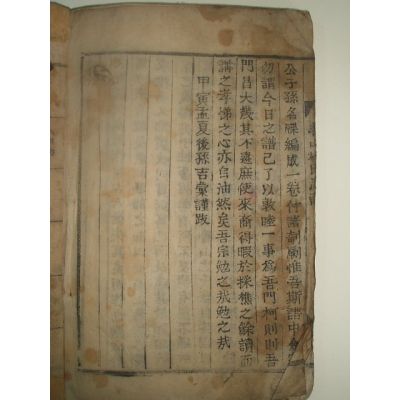 公子孫名啣編成一卷付諸剞劂惟吾斯譜中
勿謂今日之譜已了以敦睦一事爲吾門柯則則吾
門昌大幾其不遠庶使來裔得暇於採樵之餘讀而
講之孝悌之心亦自油然矣吾宗勉之哉勉之哉
甲寅孟夏後孫吉彙謹跋